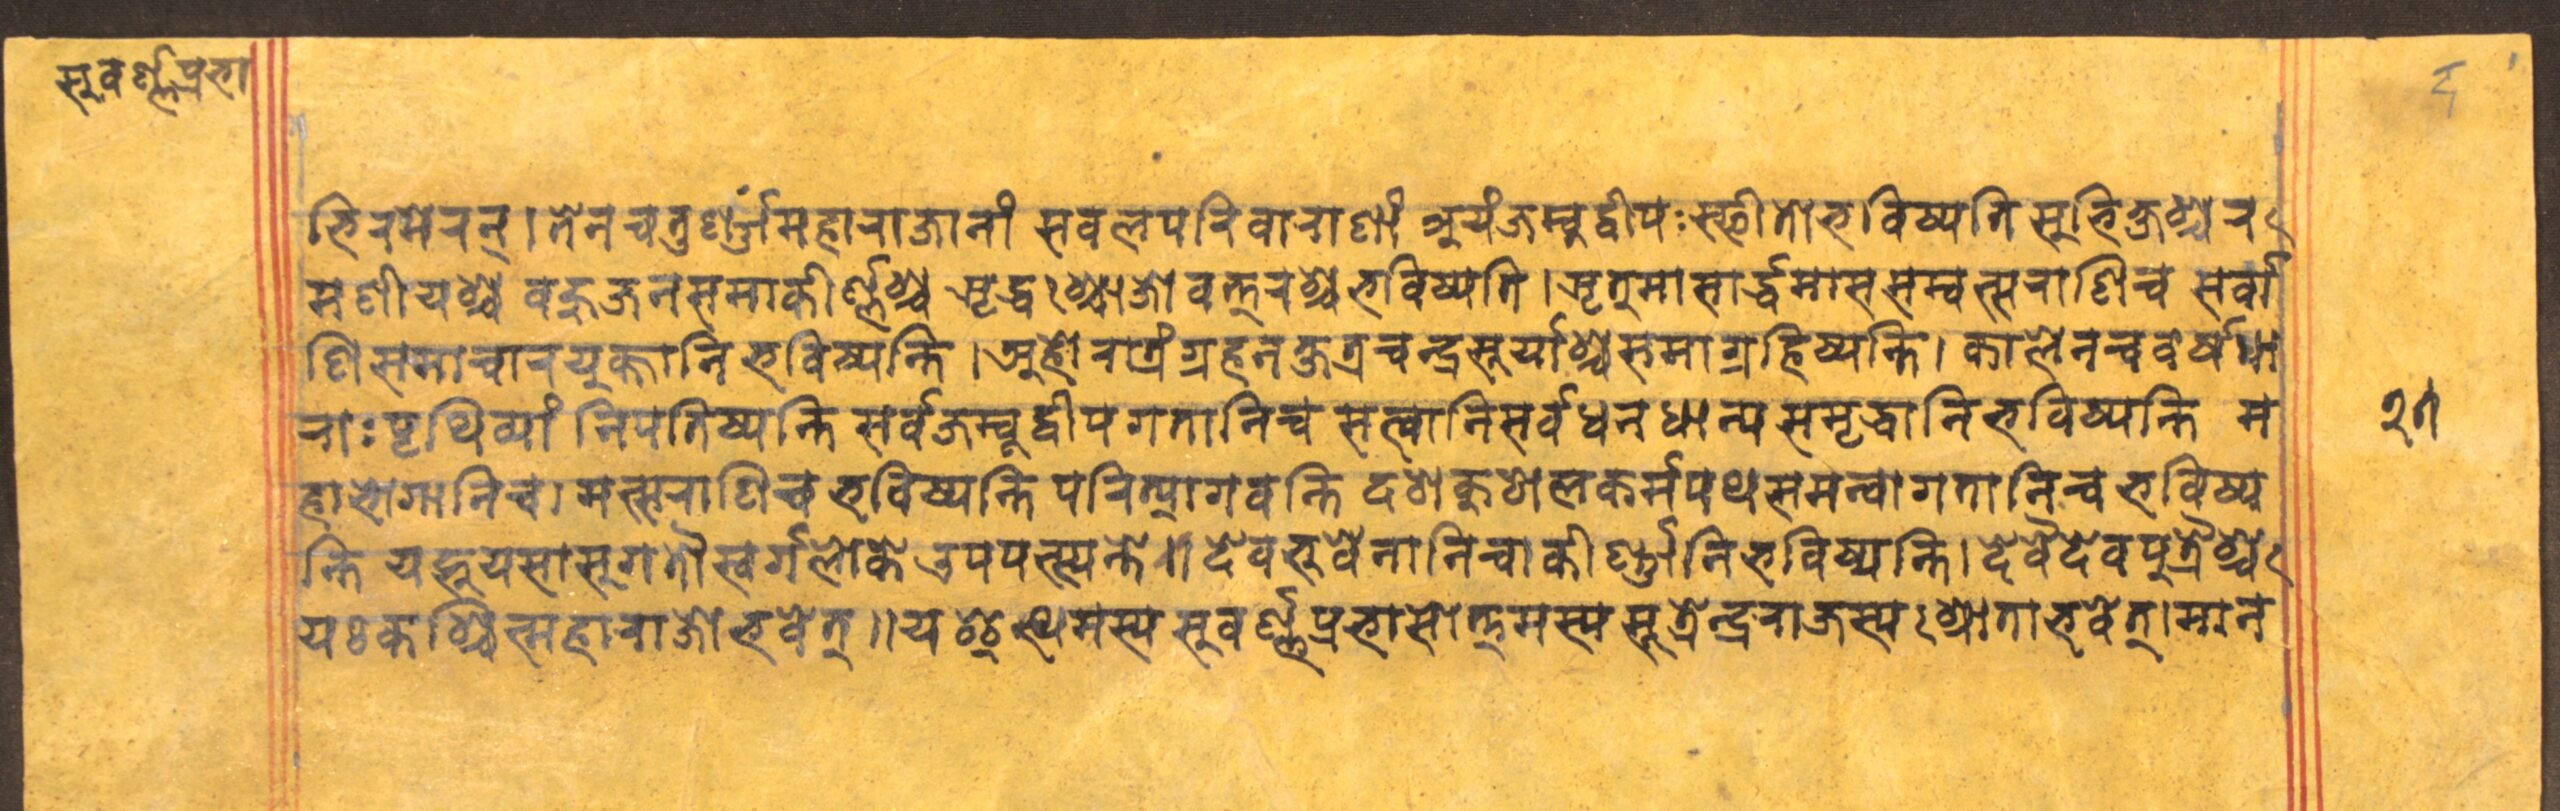 सुवर्ण्णप्रभा
भिरमेरन्। तेन चतुर्ण्णांमहाराजानां सवलपरिवाराणां अयंजम्बुद्वीपःस्फीतोभविष्यति सुभिक्षश्चर
मणीयश्च वहुजनसमाकीर्ण्णश्च ऋद्धश्चोजोवत्तरश्चभविष्यति। ऋतुमासार्द्धमाससम्वत्सराणिच सर्वा
णिसमाचारयुक्तानि भविष्यन्ति। अहोरात्रंग्रहनक्षत्रचन्द्रसूर्याश्चसमाग्रहिष्यन्ति। कालेनचवर्षधा
राःपृथिव्यां निपतिष्यन्ति सर्वजम्बूद्वीपगतानिच सत्वानिसर्वधनधान्यसमृद्धानिभविष्यन्ति म
हाभोगानिच। मत्सराणिच भविष्यन्ति परित्यागवन्ति दशकुशलकर्मपथसमन्वागतानिच भविष्य
न्ति यद्भूयसासुगतौस्वर्गलोके उपपत्स्यन्ते॥ देवभुवेनानिचाकीर्ण्णानिभविष्यन्ति। देवैदेवपुत्रैश्च
यःकश्चित्महाराजोभवेत्॥ य इत्थमस्य सुवर्ण्णप्रभासोत्तमस्य सूत्रेन्द्रराजस्य श्रोताभवेत्। मान